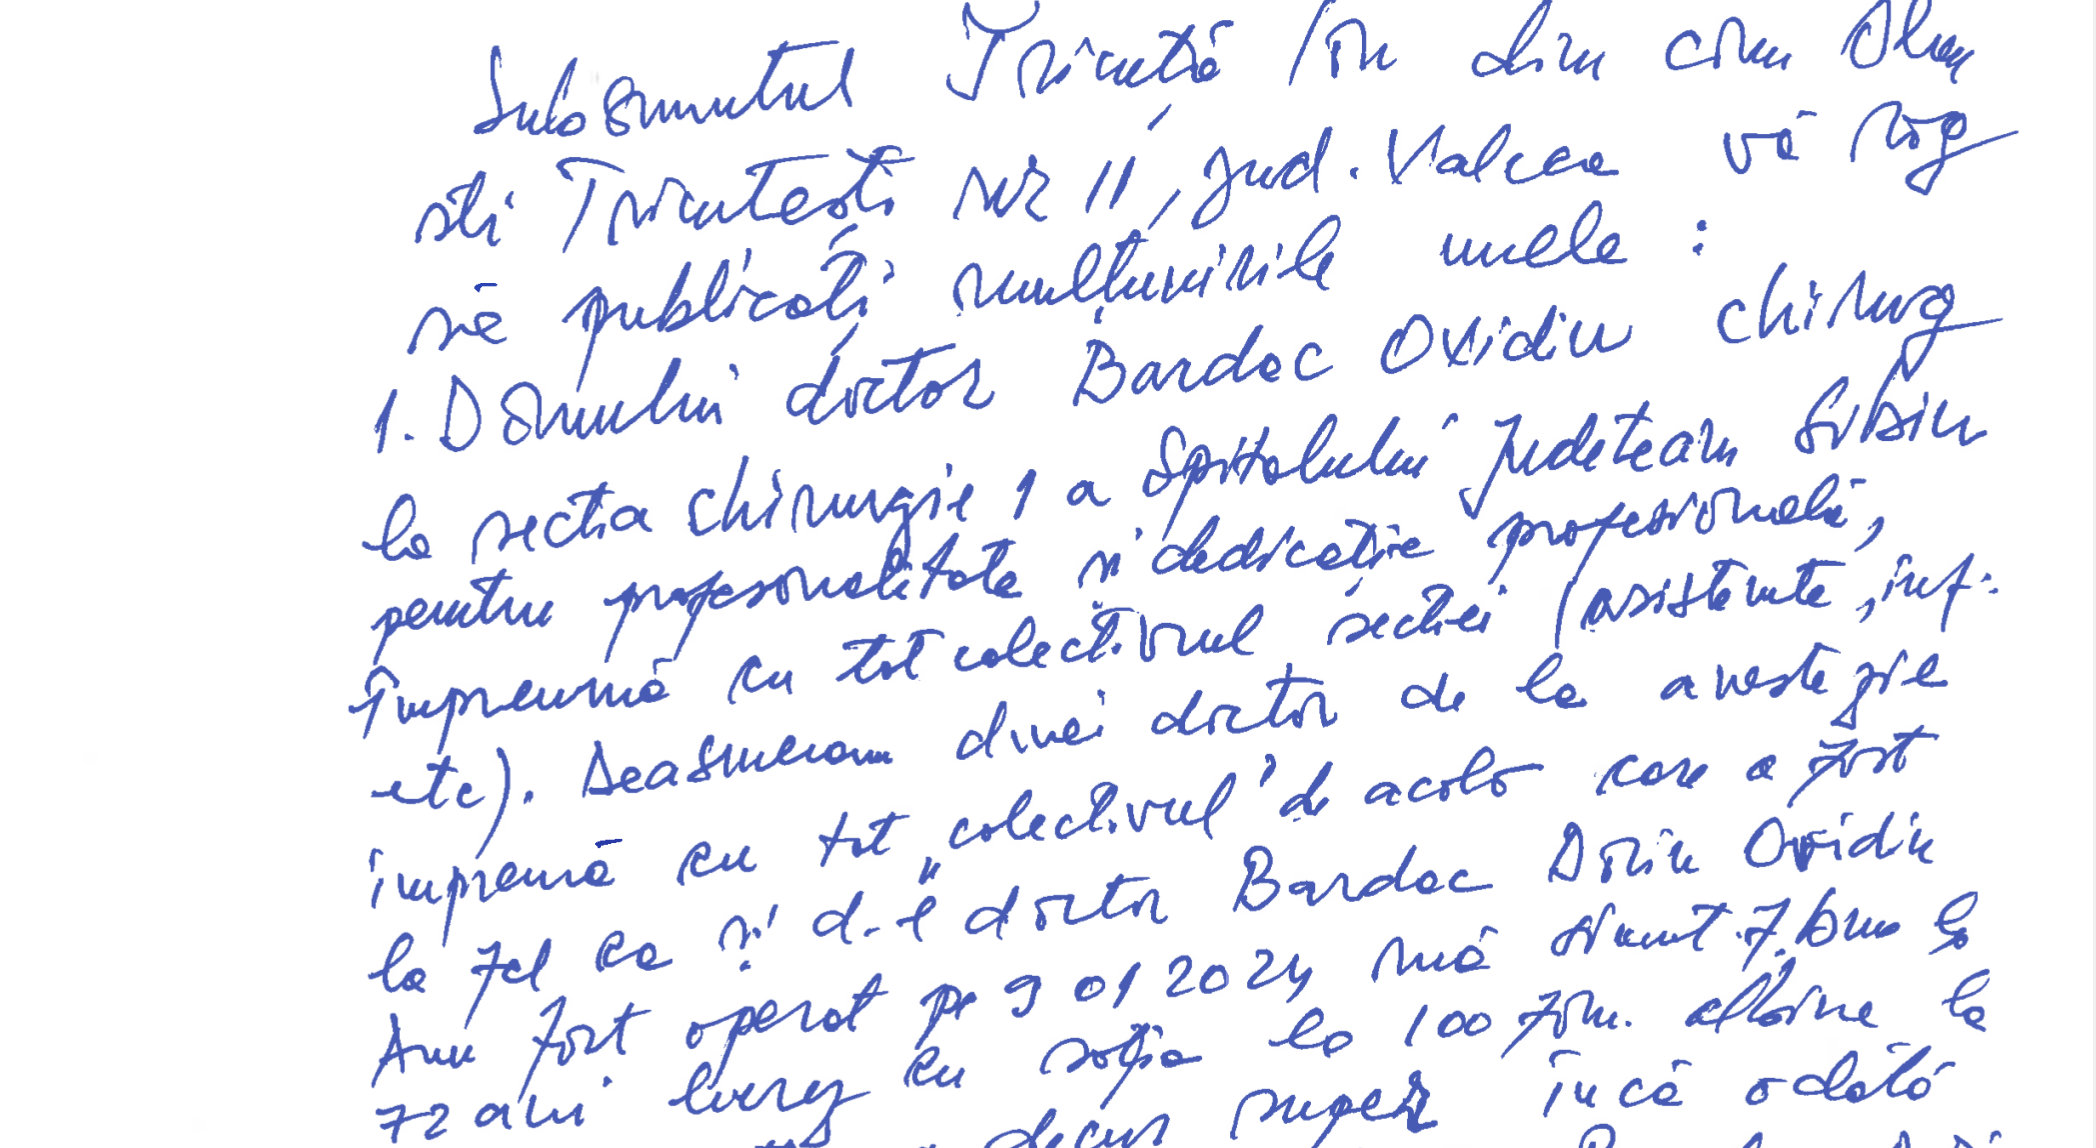 Subsemnatul Tricută Ion din com Olan
ști Tricutești nr 11, jud. Valcea vă rog
să publicați mulțumirile mele :
1. Domnului doctor Bardac Ovidiu chirurg
la sectia chirurgie 1 a Spitalului Judetean Sibiu
pentru profesonalitate și dedicație profesională,
împreună cu tot colectivul secției (asistente, inf.
etc). Deasmenea dnei doctor de la anestezie
impreună cu tot „colectivul" de acolo care a fost
la fel ca și d-l doctor Bardac Dorin Ovidiu
Am fost operat pe 9 01 2024 mă simt f. bine la
72 ani lucrez cu soția la 100 fam. albine la
decurs super încă odată